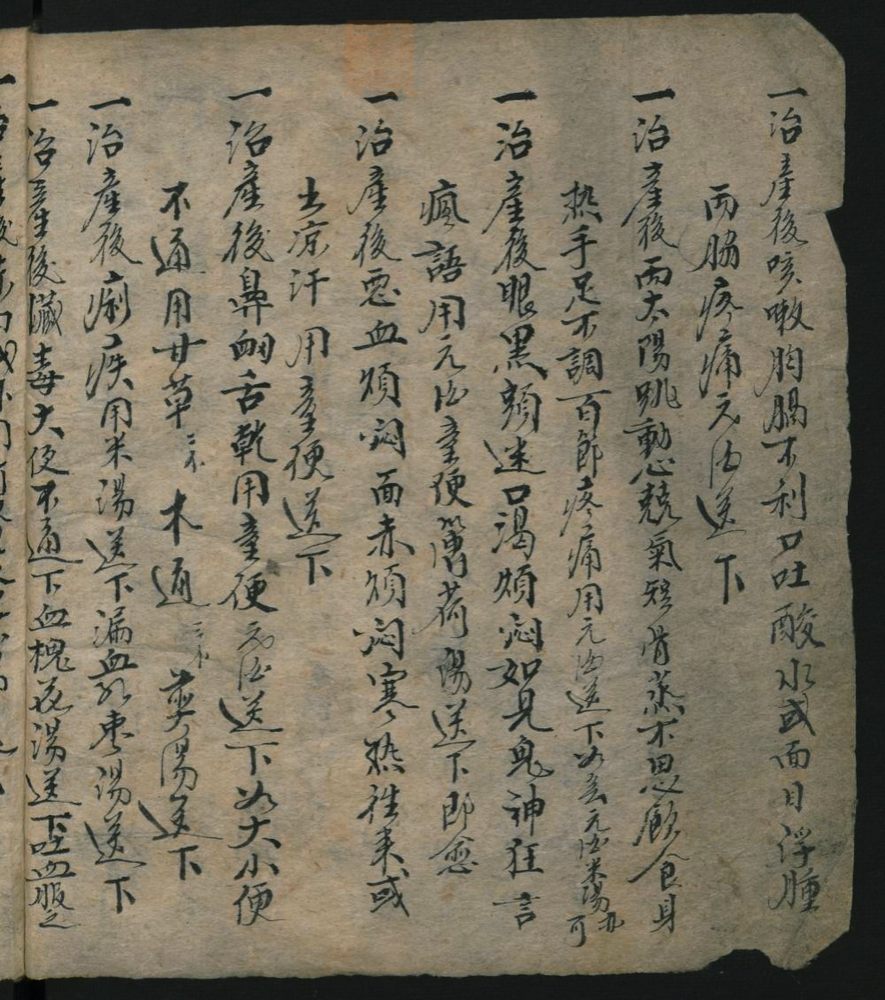 一治產後咳嗽胸膈不利口吐酸水或面目浮腫
两脇疼痛元酒送下
一治產後两太陽跳動心兢氣短骨蒸不思飲食身
热手足不調百節疼痛用元酒送下如無元酒米湯亦可
一治產後眼黑頭迷口渴煩悶如見鬼神狂言
瘋語用元酒童便薄荷湯送下即愈
一治產後惡血煩悶面赤煩悶寒热徃来或
出凉汗用童便送下
一治產後鼻衄舌乾用童便元酒送下如大小便
不通用甘草三个木通三个煎湯送下
一治產後痢疾用米湯送下漏血紅枣湯送下
一治產後臟毒大便不通下血槐花湯送下吐血服之
一治產後